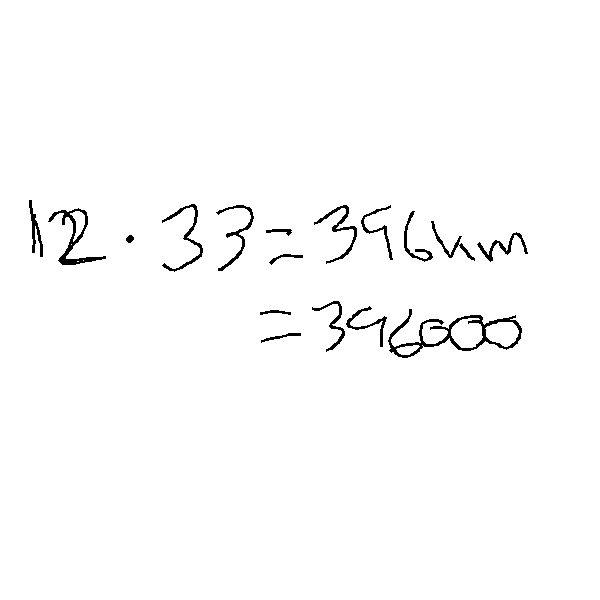 12 · 33 = 396km
= 396000